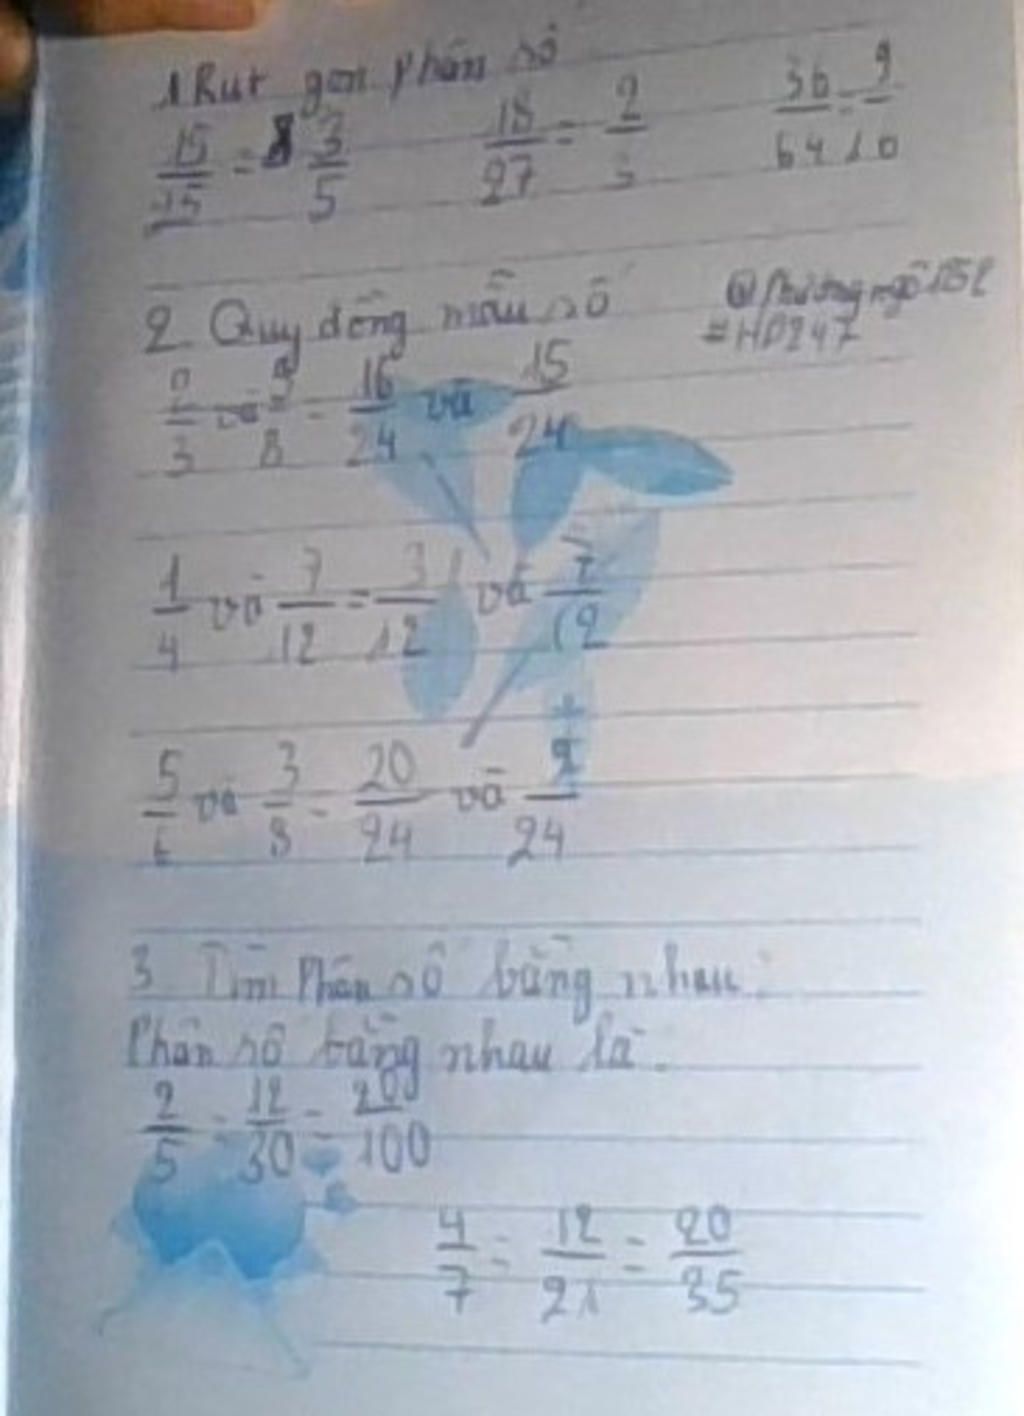 1 Rút gọn phân số
15/25 = 3/5 18/27 = 2/3 36/64 = 9/10
2. Quy đồng mẫu số
@Phươngngô152
#HD247
2/3 và 5/8 = 16/24 và 15/24
1/4 và 7/12 = 3/12 và 7/12
5/6 và 3/8 = 20/24 và 9/24
3. Tìm Phân số bằng nhau:
Phân số bằng nhau là:
2/5 = 12/30 = 20/100
4/7 = 12/21 = 20/35